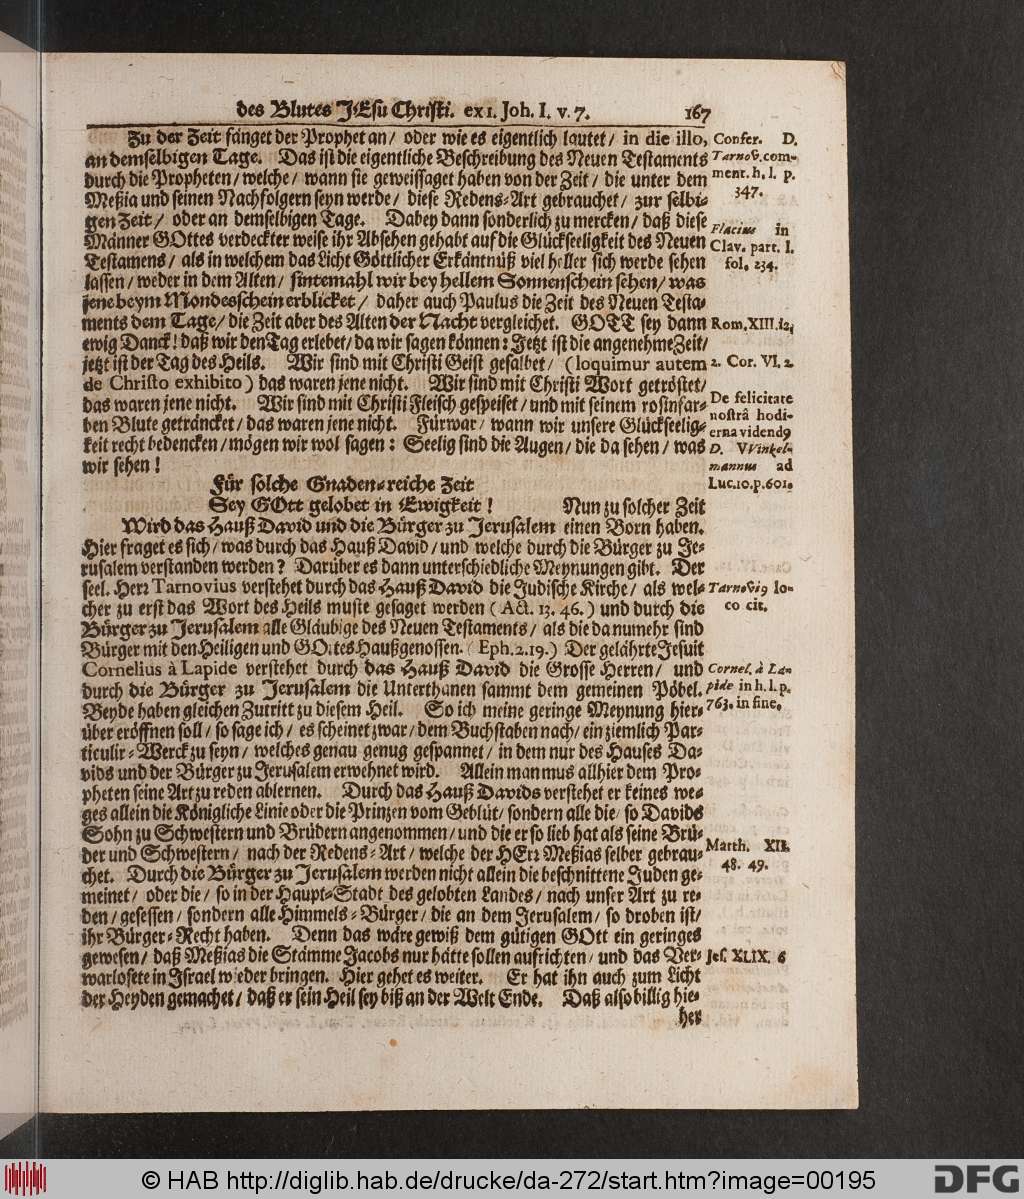 des Blutes JEsu Christi. ex 1. Joh. I. v. 7. 167
Zu der Zeit fänget der Prophet an/ oder wie es eigentlich lautet/ in die illo,
an demselbigen Tage. Das ist die eigentliche Beschreibung des Neuen Testaments
durch die Propheten/ welche/ wann sie geweissaget haben von der Zeit/ die unter dem
Meßia und seinen Nachfolgern seyn werde/ diese Redens-Art gebrauchet/ zur selbi-
gen Zeit/ oder an demselbigen Tage. Dabey dann sonderlich zu mercken/ daß diese
Männer GOttes verdeckter weise ihr Absehen gehabt auf die Glückseeligkeit des Neuen
Testamens/ als in welchem das Licht Göttlicher Erkäntnüß viel heller sich werde sehen
lassen/ weder in dem Alten/ sintemahl wir bey hellem Sonnenschein sehen/ was
jene beym Mondesschein erblicket/ daher auch Paulus die Zeit des Neuen Testa-
ments dem Tage/ die Zeit aber des Alten der Nacht vergleichet. GOTT sey dann
ewig Danck! daß wir den Tag erlebet/ da wir sagen können: Jetzt ist die angenehme Zeit/
jetzt ist der Tag des Heils. Wir sind mit Christi Geist gesalbet/ (loquimur autem
de Christo exhibito) das waren jene nicht. Wir sind mit Christi Wort getröstet/
das waren jene nicht. Wir sind mit Christi Fleisch gespeiset/ und mit seinem rosinfar-
ben Blute geträncket/ das waren jene nicht. Fürwar/ wann wir unsere Glückseelig-
keit recht bedencken/ mögen wir wol sagen: Seelig sind die Augen/ die da sehen/ was
wir sehen!
Für solche Gnaden-reiche Zeit
Sey GOtt gelobet in Ewigkeit! Nun zu solcher Zeit
Wird das Hauß David und die Bürger zu Jerusalem einen Born haben.
Hier fraget es sich/ was durch das Hauß David/ und welche durch die Bürger zu Je-
rusalem verstanden werden? Darüber es dann unterschiedliche Meynungen gibt. Der
seel. Herr Tarnovius verstehet durch das Hauß David die Jüdische Kirche/ als wel-
cher zu erst das Wort des Heils muste gesaget werden (Act. 13. 46.) und durch die
Bürger zu Jerusalem alle Gläubige des Neuen Testaments/ als die da numehr sind
Bürger mit den Heiligen und GOttes Haußgenossen. (Eph. 2. 19.) Der gelährte Jesuit
Cornelius à Lapide verstehet durch das Hauß David die Grosse Herren/ und
durch die Bürger zu Jerusalem die Unterthanen sammt dem gemeinen Pöbel.
Beyde haben gleichen Zutritt zu diesem Heil. So ich meine geringe Meynung hier-
über eröffnen soll/ so sage ich/ es scheinet zwar/ dem Buchstaben nach/ ein ziemlich Par-
ticulir-Werck zu seyn/ welches genau genug gespannet/ in dem nur des Hauses Da-
vids und der Bürger zu Jerusalem erwehnet wird. Allein man mus allhier dem Pro-
pheten seine Art zu reden ablernen. Durch das Hauß Davids verstehet er keines we-
ges allein die Königliche Linie oder die Prinzen vom Geblüt/ sondern alle die/ so Davids
Sohn zu Schwestern und Brüdern angenommen/ und die er so lieb hat als seine Brü-
der und Schwestern/ nach der Redens-Art/ welche der HErr Meßias selber gebrau-
chet. Durch die Bürger zu Jerusalem werden nicht allein die beschnittene Juden ge-
meinet/ oder die/ so in der Haupt-Stadt des gelobten Landes/ nach unser Art zu re-
den/ gesessen/ sondern alle Himmels-Bürger/ die an dem Jerusalem/ so droben ist/
ihr Bürger-Recht haben. Denn das wäre gewiß dem gütigen GOtt ein geringes
gewesen/ daß Meßias die Stämme Jacobs nur hätte sollen aufrichten/ und das Ver-
warlosete in Israel wieder bringen. Hier gehet es weiter. Er hat ihn auch zum Licht
der Heyden gemachet/ daß er sein Heil sey biß an der Welt Ende. Daß also billig hie-
her
Confer. D.
Tarnov. com-
ment. h. l. p.
347.
Flacius in
Clav. part. I.
fol. 234.
Rom. XIII. 12.
2. Cor. VI. 2.
De felicitate
nostrâ hodi-
erna vidend9
D. Winkel-
mannus ad
Luc. 10. p. 601.
Tarnovi9 lo-
co cit.
Cornel. à La-
pide in h. l. p.
763. in fine.
Matth. XII.
48. 49.
Jes. XLIX. 6
© HAB http://diglib.hab.de/drucke/da-272/start.htm?image=00195
DFG